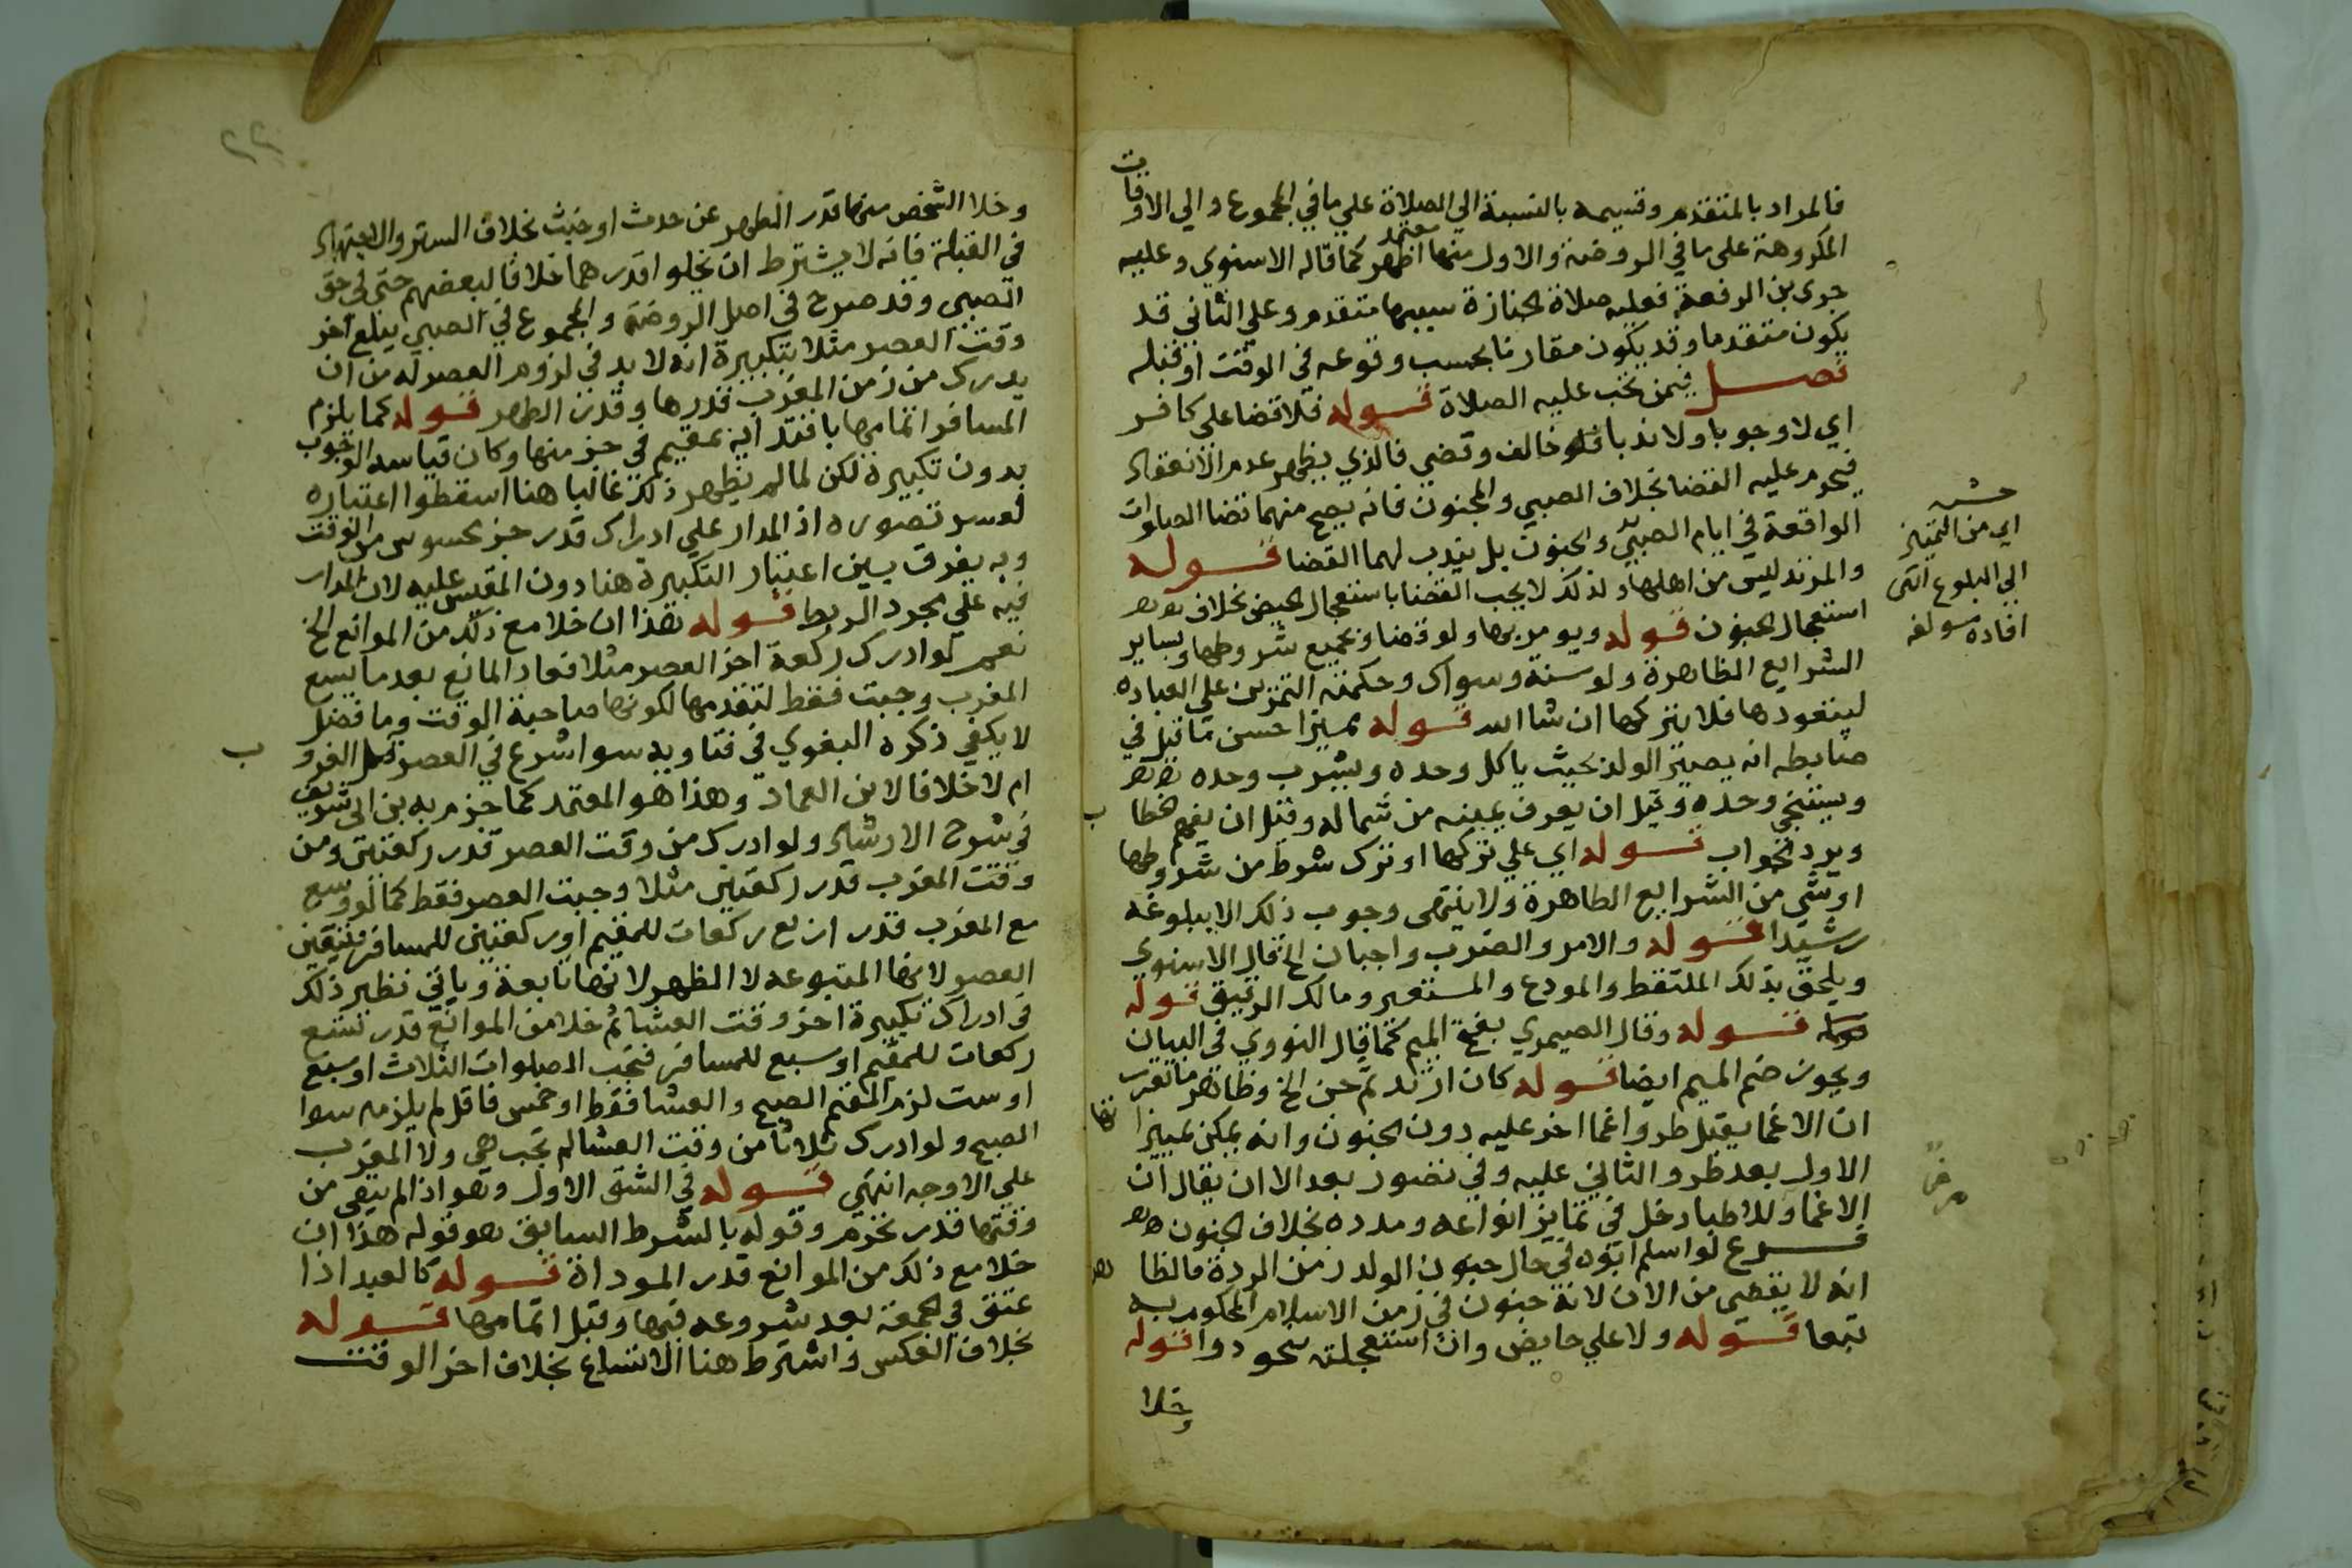 فالمراد بالمتقدم وقسيمه بالنسبة الي الصلاة علي ما في المجموع والي الاوقات
المكروهة على ما في الروضة والاول منهما اظهر كما قاله الاسنوي وعليه
معتمد
جرى بن الرفعة فعليه صلاة الجنازة سببها متقدم وعلي الثاني قد
يكون متقدما وقد يكون مقارنا بحسب وقوعه في الوقت او قبله
فصل فيمن تجب عليه الصلاة قوله فلا قضا على كافر
اي لا وجوبا ولا ندبا فلو خالف وقضي فالذي يظهر عدم الانعقاد
فيحرم عليه القضا بخلاف الصبي والمجنون فانه يصح منهما قضا الصلوات
الواقعة في ايام الصبي والجنون بل يندب لهما القضا قوله
والمرتد ليس من اهلها ولذلك لا يجب القضا باستعجال الحيض بخلاف
استعجال الجنون قوله ويومر بها ولو قضا وبجميع شروطها وبساير
الشرايع الظاهرة ولو سنة وسواك وحكمته التمرين علي العباده
ليتعودها فلا يتركها ان شا الله قوله مميزا احسن ما قيل في
ضابطه انه يصير الولد بحيث ياكل وحده ويشرب وحده
ويستنجي وحده وقيل ان يعرف يمينه من شماله وقيل ان يفهم الخطاب
ويرد الجواب قوله اي علي تركها او ترك شرط من شروطها
او شي من الشرايع الظاهرة ولا ينتهى وجوب ذلك الا ببلوغه
رشيدا قوله والامر والضرب واجبان الخ قال الاسنوي
ويلحق بذلك الملتقط والمودع والمستعير ومالك الرقيق قوله
قوله وقال الصيمري بفتح الميم كما قال النووي في البيان
ويجوز ضم الميم ايضا قوله كان ارتد ثم جن الخ وظاهر ما تقرر
ان الاغما يقبل طرو اغما اخر عليه دون الجنون وانه يمكن تمييز انتها
الاول بعد طرو الثاني عليه وفي تصور بعد الا ان يقال ان
الاغما وللاطبا دخل في تمايز انواعه ومدده بخلاف الجنون
فرع لو اسلم ابوه في حال جنون الولد زمن الردة فالظاهر
انه لا يقضي من الان لانه جنون في زمن الاسلام المحكوم به
تبعا قوله ولا علي حايض وان استعجلته بنحو دوا قوله
وخلا
اي من التمييز
الي البلوغ انتهى
افاده مولفه
٢٢
وخلا الشخص منها قدر الطهر عن حدث او خبث بخلاف الستر والاجتهاد
في القبلة فانه لا يشترط ان تخلوا قدرهما خلافا لبعضهم حتى في حق
الصبى وقد صرح في اصل الروضة والمجموع في الصبي يبلغ اخر
وقت العصر مثلا بتكبيرة انه لا بد في لزوم العصر له من ان
يدرك من زمن المغرب قدرها وقدر الطهر قوله كما يلزم
المسافر اتمامها باقتدايه بمقيم في جز منها وكان قياسه الوجوب
بدون تكبيرة لكن لما لم يظهر ذلك غالبا هنا اسقطوا اعتباره
لعسر تصوره اذ المدار علي ادراك قدر جز محسوس من الوقت
وبه يفرق بين اعتبار التكبيرة هنا دون المقيس عليه لان المدار
فيه علي مجرد الربط قوله هذا ان خلا مع ذلك من الموانع الخ
نعم لو ادرك ركعة اخر العصر مثلا فعاد المانع بعد ما يسع
المغرب وجبت فقط لتقدمها لكونها صاحبة الوقت وما فضل
لا يكفي ذكره البغوي في فتاويه سوا شرع في العصر قبل الغروب
ام لا خلافا لابن العماد وهذا هو المعتمد كما جزم به بن ابي شريف
في شرح الارشاد ولو ادرك من وقت العصر قدر ركعتين ومن
وقت المغرب قدر ركعتين مثلا وجبت العصر فقط كما لو وسع
مع المغرب قدر اربع ركعات للمقيم او ركعتين للمسافر فتتعين
العصر لانها المتبوعه لا الظهر لانها تابعة وياتي نظير ذلك
في ادراك تكبيرة اخر وقت العشا ثم خلا من الموانع قدر تسع
ركعات للمقيم او سبع للمسافر فتجب الصلوات الثلاث او سبع
او ست لزم المقيم الصبح والعشا فقط او خمس فاقل لم يلزمه سوا
الصبح ولو ادرك ثلاثا من وقت العشا لم تجب هي ولا المغرب
علي الاوجه انتهى قوله في الشق الاول وهو اذا لم يبقى من
وقتها قدر تحرم وقوله بالشرط السابق هو قوله هذا ان
خلا مع ذلك من الموانع قدر الموداة قوله كالعبد اذا
عتق في الجمعة بعد شروعه فيها وقبل اتمامها قوله
بخلاف العكس واشترط هنا الاتساع بخلاف اخر الوقت